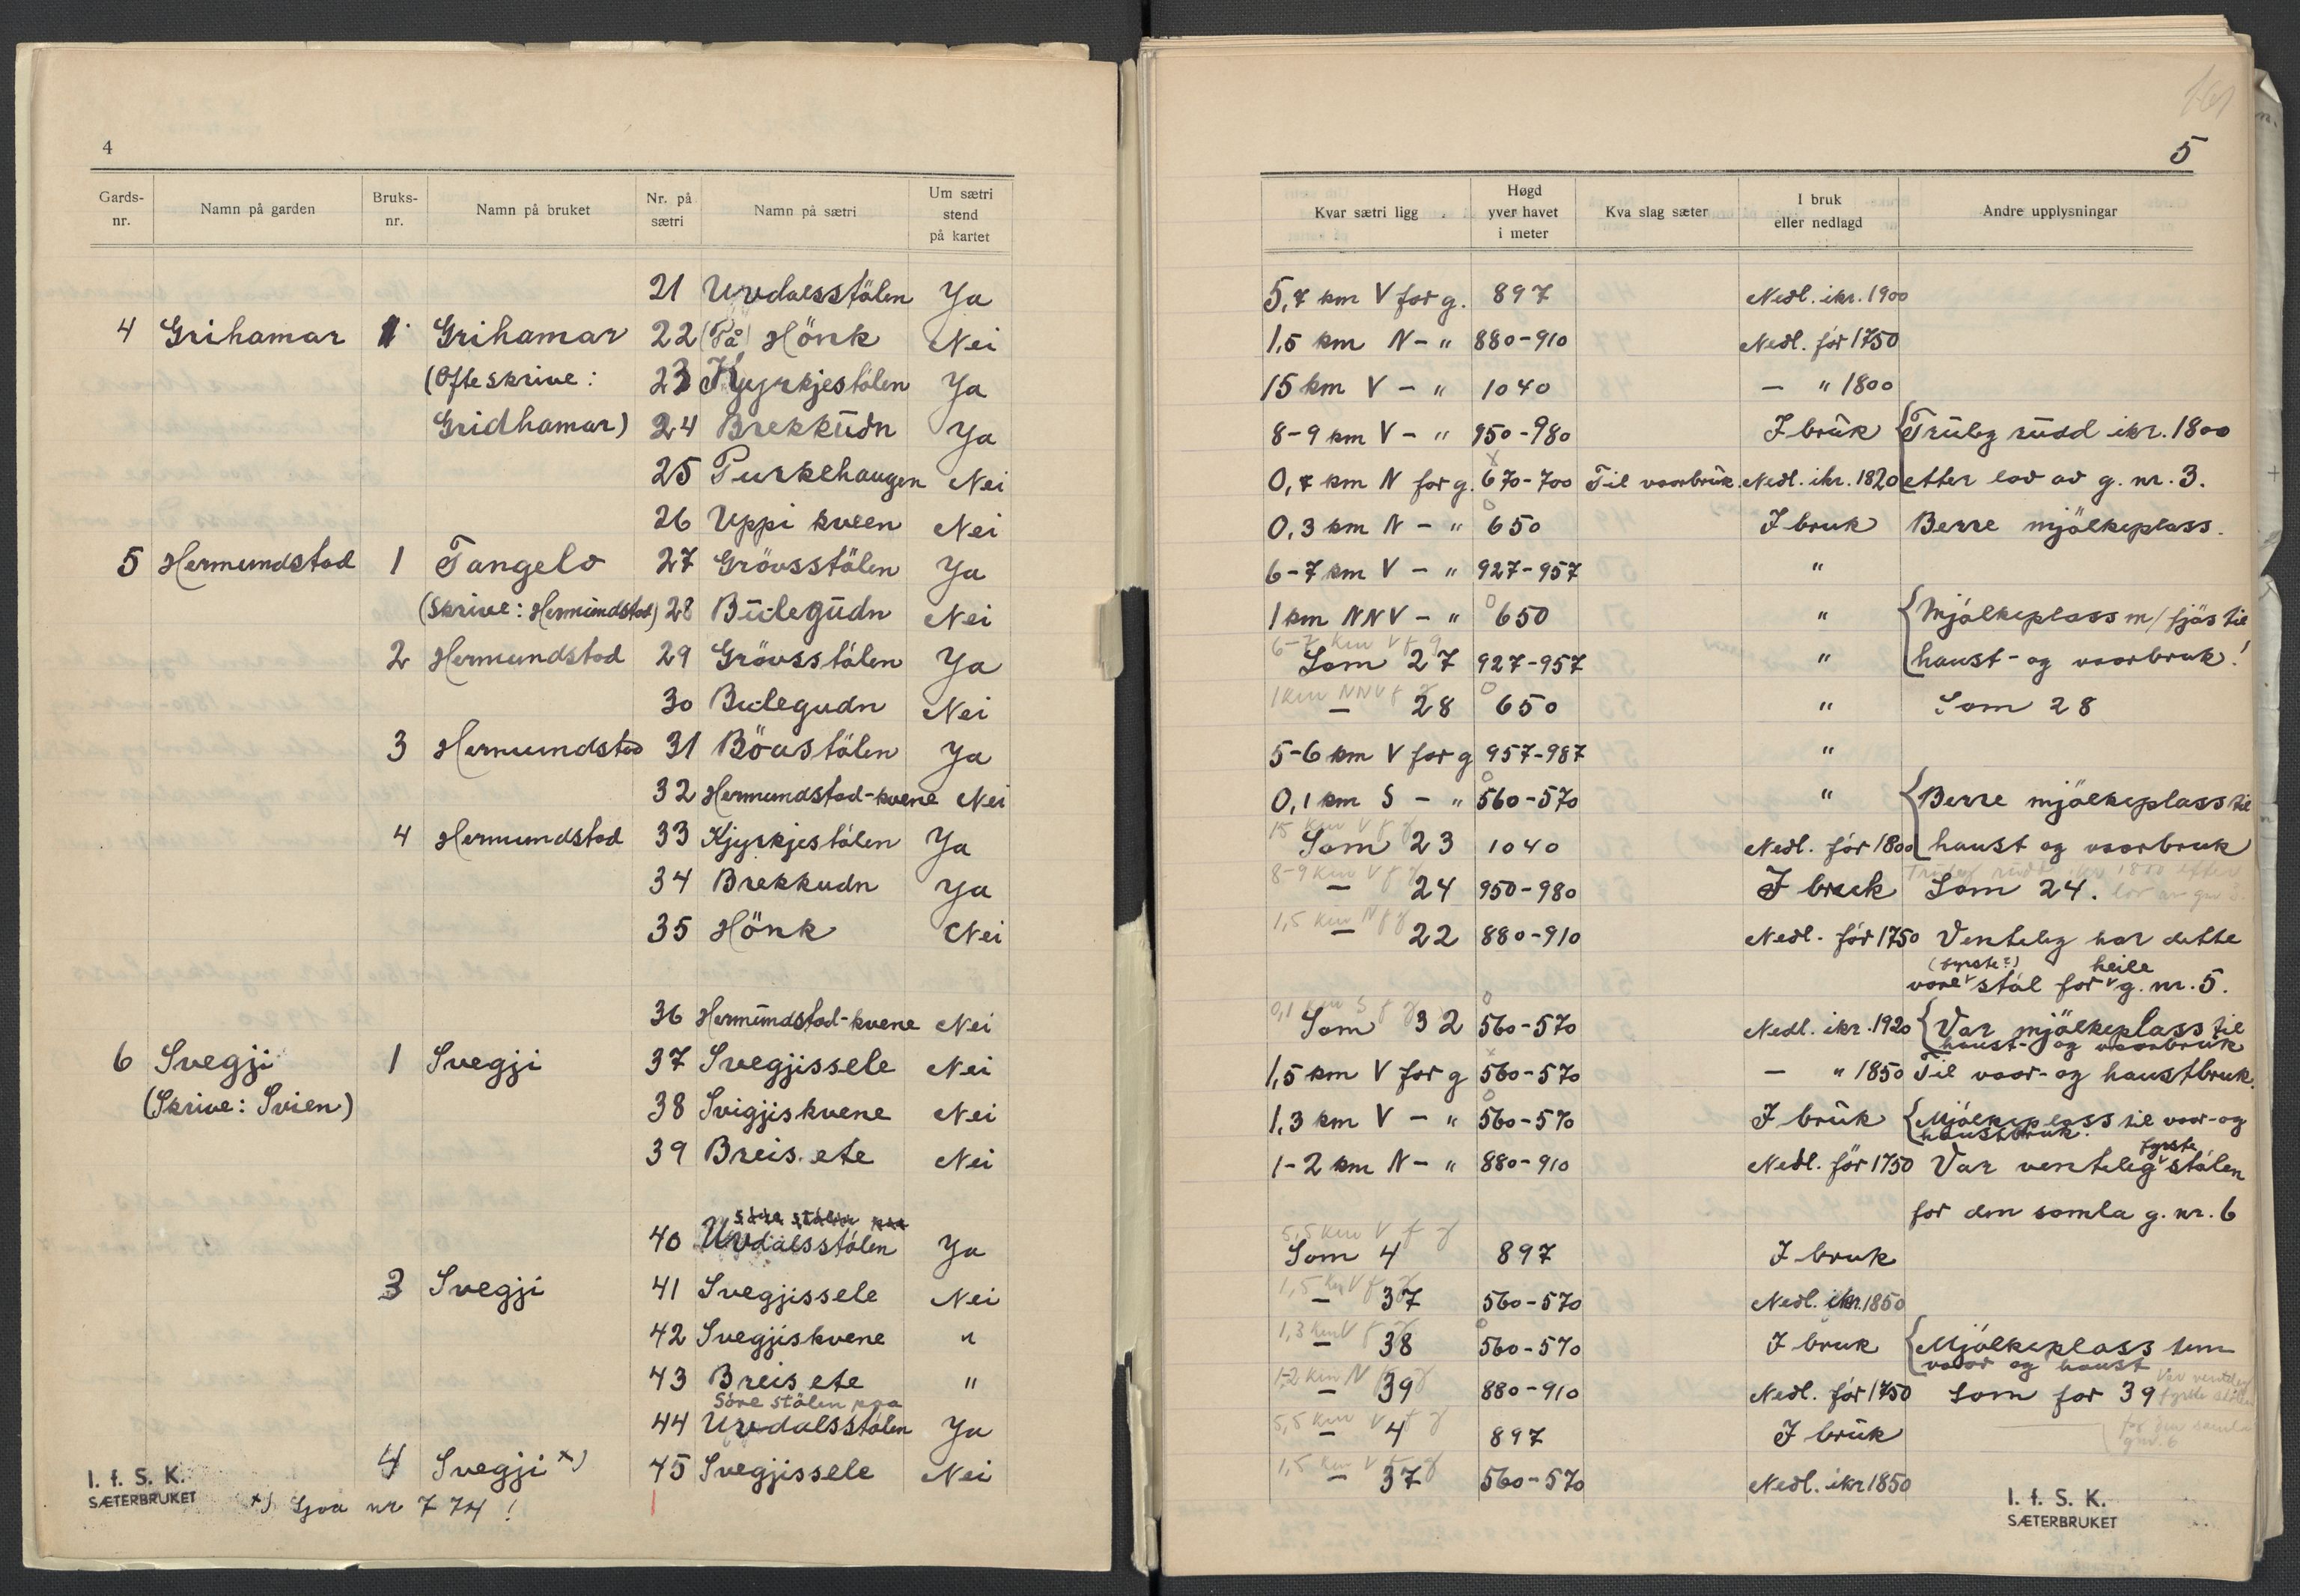 4
Gards-nr. Namn på garden Bruks-nr. Namn på bruket Nr. på sætri Namn på sætri Um sætri stend på kartet
21 Uvdalsstölen Ja
4 Grihamar 1 Grihamar 22 (På) Hönk Nei
(Ofte skrive: 23 Kjyrkjestölen Ja
Gridhamar) 24 Brekkudn Ja
25 Purkehaugen Nei
26 Uppi kveen Nei
5 Hermundstad 1 Tangelv 27 Grövsstölen Ja
(Skrive: Hermundstad) 28 Bulegudn Nei
2 Hermundstad 29 Grövsstölen Ja
30 Bulegudn Nei
3 Hermundstad 31 Bövstölen Ja
32 Hermundstad-kvene Nei
4 Hermundstad 33 Kjyrkjestölen Ja
34 Brekkudn Ja
35 Hönk Nei
36 Hermundstad-kvene Nei
6 Svegji 1 Svegji 37 Svegjissele Nei
(Skrive: Svien) 38 Svigjiskvene Nei
39 Breis.ete Nei
40 Uvdalsstölen Ja
3 Svegji 41 Svegjissele Nei
42 Svegjiskvene "
43 Breis ete "
Söre stölen paa
44 Uvdalsstölen Ja
4 Svegji x) 45 Svegjissele Nei
x) Sjoa nr 774!
I. f. S. K.
SÆTERBRUKET
161
5
Kvar sætri ligg Høgd yver havet i meter Kva slag sæter I bruk eller nedlagd Andre upplysningar
5,7 km V for g. 897 Nedl. ikr. 1900
1,5 km N - " 880-910 Nedl. för 1750
15 km V - " 1040 - " 1800
8-9 km V - " 950-980 I bruk Truleg rudd ikr. 1800
0,7 km N for g. 670-700 Til voorbruk. Nedl. ikr. 1820 etter lov av g. nr. 3.
0,3 km N - " 650 I bruk Berre mjölkeplass.
6-7 km V - " 927-957 "
1 km NNV - " 650 " Mjölkeplass m/fjös til
6-7 km V f g
Som 27 927-957 " haust- og voorbruk!
1 km NNV f g
- 28 650 " Som 28
5-6 km V for g 957-987 "
0,1 km S - " 560-570 " Berre mjölkeplass til
15 km V f g
Som 23 1040 Nedl. för 1800 haust og voorbruk
8-9 km V f g Truleg rudd ikr 1800 etter
- 24 950-980 I bruk Som 24. lov av gnr 3.
1,5 km N f g
- 22 880-910 Nedl. för 1750 Venteleg har dette
(fyrste?) heile
vore stöl for g. nr. 5.
0,1 km S f g
Som 32 560-570 Nedl. ikr. 1920 Var mjölkeplass til
haust- og voorbruk
1,5 km V for g 560-570 - " 1850 Til voor- og haustbruk.
1,3 km V - " 560-570 I bruk Mjölkeplass til voor- og
haustbruk.
fyrste
1-2 km N - " 880-910 Nedl. för 1750 Var venteleg stölen
for den samla g. nr. 6
5,5 km V f g
Som 4 897 I bruk
1,5 km V f g
- 37 560-570 Nedl. ikr. 1850
1,3 km V f g
- 38 560-570 I bruk Mjölkeplass um
voor og haust
1-2 km N f g Var venteleg
- 39 880-910 Nedl. för 1750 Som for 39 fyrste stölen
5,5 km V f g for den samla
- 4 897 I bruk gnr. 6
1,5 km V f g
- 37 560-570 Nedl. ikr 1850
I. f. S. K.
SÆTERBRUKET